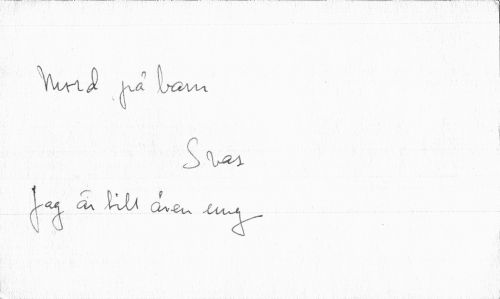 Mord på barn
Svar
Jag är till åren ung